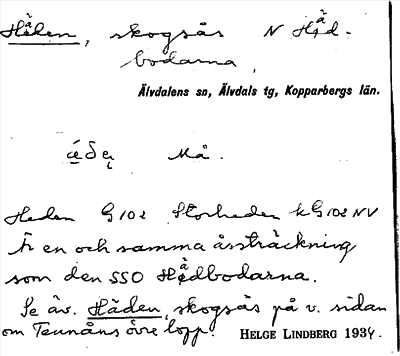 Håden, skogsås N Håd-
bodarna,
Älvdalens sn, Älvdals tg, Kopparbergs län.
Må.
Heden G 102 Storheden k G 102 NV
Är en och samma åssträckning
som den SSO Hådbodarna.
Se äv. Håden, skogsås på v. sidan
om Tennåns övre lopp. HELGE LINDBERG 1934.